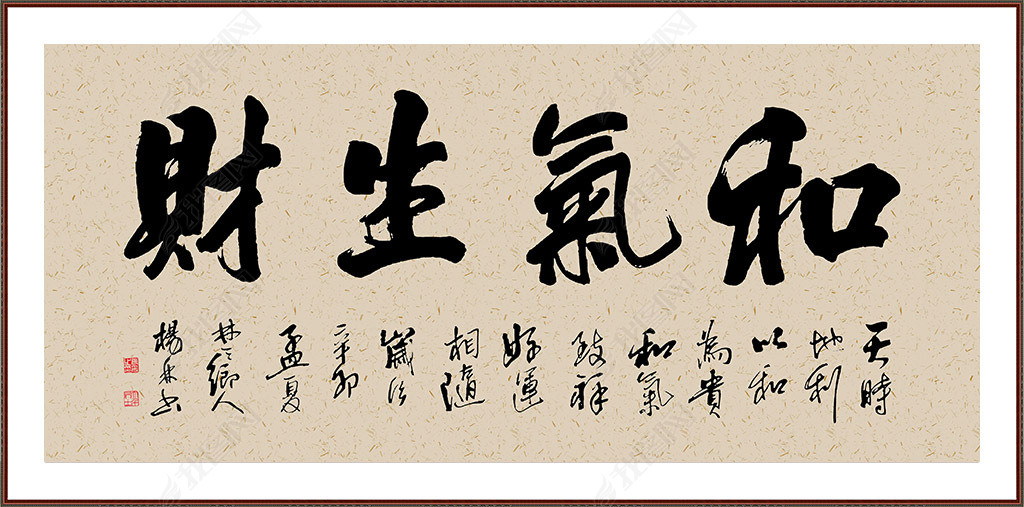 和氣生財
天時
地利
以和
為貴
和氣
致祥
好運
相隨
歲次
辛卯
孟夏
鄉人
楊林书